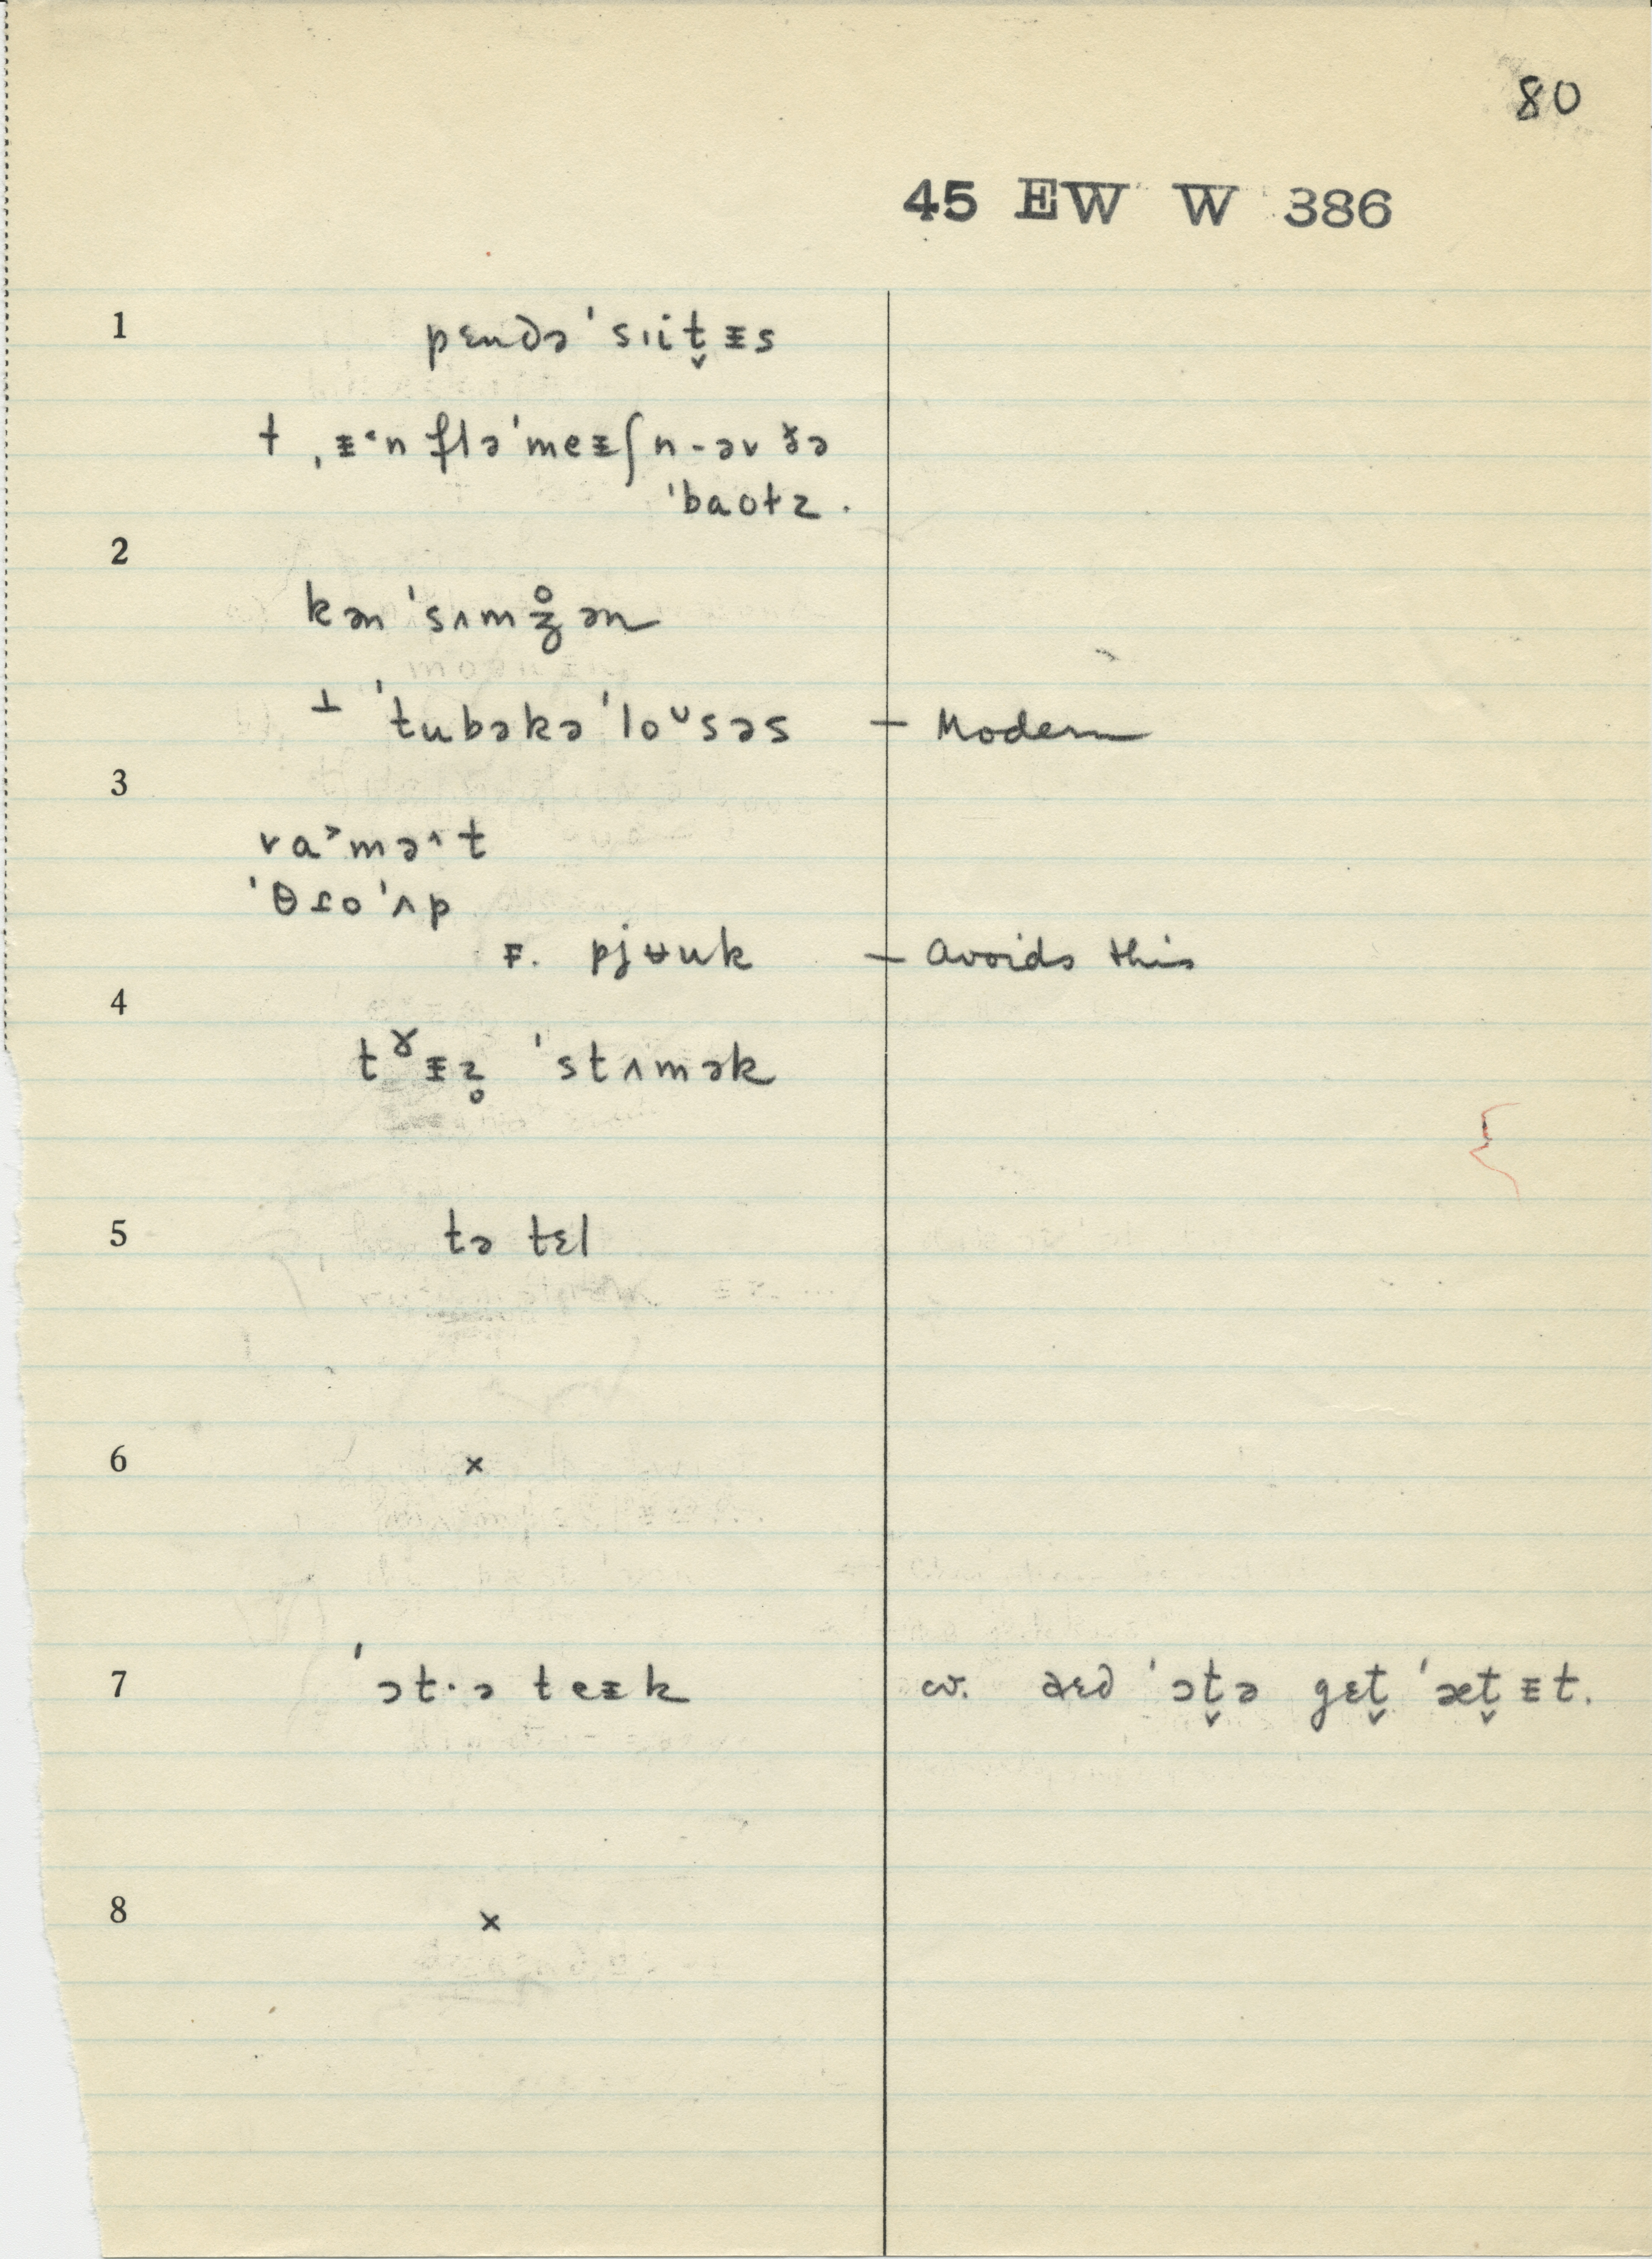 80
45 EW W 386
1 pɛndə ˈsɪit̬ᵻs
† ˌᵻ˂n fləˈmeᵻʃn-əv ðə
ˈbaʊtz.
2
kənˈsʌmʒ̊ən
⊥ ˈtubəkəˈloᶷsəs — Modern
3
va˃mə˄t
ˈθɾoˈʌp
ꜰ. pjʉuk — avoids this
4
tˠᵻz̥ ˈstʌmək
5 tə tɛl
6 ×
7 ˈɔt·ə teᵻk cv. aɛd ˈɔt̬ə gɛt̬ ˈæt̬ᵻt.
8 ×